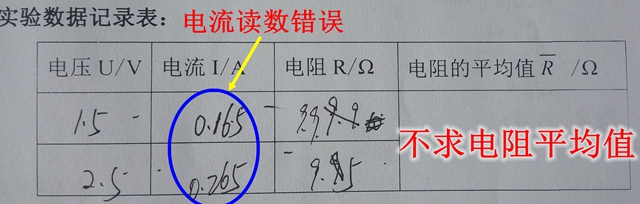 实验数据记录表：电流读数错误
电压 U/V 电流 I/A 电阻 R/Ω 电阻的平均值 R̅ /Ω
1.5 0.165 9.9
不求电阻平均值
2.5 0.265